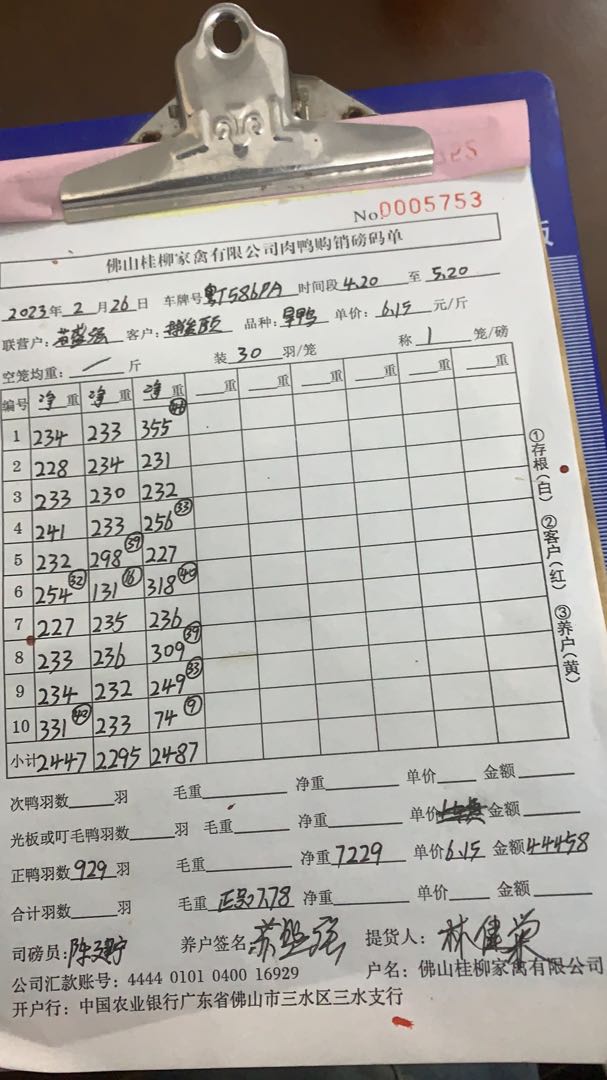 No 0005753
佛山桂柳家禽有限公司肉鸭购销磅码单
2023年 2 月 26 日 车牌号 粤T586PA 时间段 4.20 至 5.20
联营户: 客户: 品种: 旱鸭 单价: 6.15 元/斤
空笼均重: / 斤 装 30 羽/笼 称 1 笼/磅
编号 净重 净重 净重 重 重 重 重 重 重
1 234 233 355 44
2 228 234 231
3 233 230 232
4 241 233 256 33
5 232 298 39 227
6 254 32 131 16 318 40
7 227 235 236
8 233 236 309 39
9 234 232 249 33
10 331 42 233 74 9
小计 2447 2295 2487
①存根(白) ②客户(红) ③养户(黄)
次鸭羽数 羽 毛重 净重 单价 金额
光板或叮毛鸭羽数 羽 毛重 净重 单价 金额
正鸭羽数 929 羽 毛重 净重 7229 单价 6.15 金额 44458
合计羽数 羽 毛重 7.78 净重 单价 金额
司磅员: 养户签名 提货人: 林健荣
公司汇款账号: 4444 0101 0400 16929 户名: 佛山桂柳家禽有限公司
开户行: 中国农业银行广东省佛山市三水区三水支行